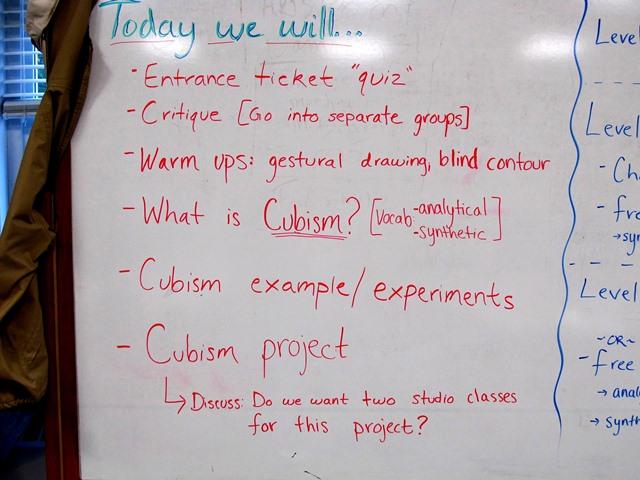 Today we will...
- Entrance ticket "quiz"
- Critique [Go into separate groups]
- Warm ups: gestural drawing, blind contour
- What is Cubism? [Vocab: -analytical
-synthetic]
- Cubism example/experiments
- Cubism project
↳ Discuss: Do we want two studio classes
for this project?
Level
Level
-
-
Level
~OR~
- free
→
→